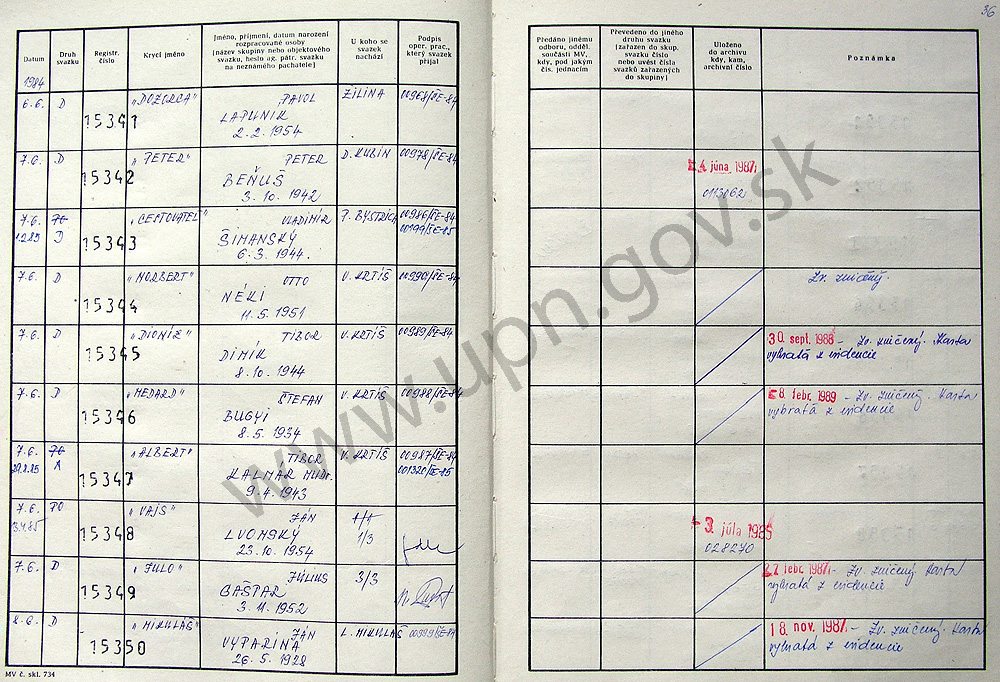 36
Datum
Druh svazku
Registr. číslo
Krycí jméno
Jméno, příjmení, datum narození
rozpracované osoby
(název skupiny nebo objektového
svazku, heslo ag. pátr. svazku
na neznámého pachatele)
U koho se
svazek
nachází
Podpis
oper. prac.,
který svazek
přijal
Předáno jinému
odboru, odděl.
součásti MV,
kdy, pod jakým
čís. jednacím
Převedeno do jiného
druhu svazku
(zařazen do skup.
svazku číslo
nebo uvést čísla
svazků zařazených
do skupiny)
Uloženo
do archivu
kdy, kam,
archivní číslo
Poznámka
1984
6.6. D 15341 „DOZORCA" PAVOL ŽILINA 00968/ŠE-84
LAPUNIK
2.2.1954
7.6. D 15342 „PETER" PETER D. KUBÍN 00978/ŠE-84
BEŇUŠ
3.10.1942
4. júna 1987
0113062
7.6. D 15343 „CESTOVATEĽ" VLADIMÍR P. BYSTRICA 00986/ŠE-84
ŠIMANSKÝ
6.3.1944
7.6. D 15344 „NORBERT" OTTO V. KRTÍŠ 00990/ŠE-84
NÉKI
11.5.1951
Zv. zničený.
7.6. D 15345 „DIONÍZ" TIBOR V. KRTÍŠ 00989/ŠE-84
DIMÍK
8.10.1944
30. sept. 1988 - Zv. zničený. Karta
vybratá z evidencie
7.6. D 15346 „MEDARD" ŠTEFAN V. KRTÍŠ 00988/ŠE-84
BUGYI
8.5.1934
8. febr. 1989 - Zv. zničený. Karta
vybratá z evidencie
7.6. A 15347 „ALBERT" TIBOR V. KRTÍŠ 00987/ŠE-84
KALMAR MUDr. 001320/ŠE-85
9.4.1943
7.6. PO 15348 „VAJS" JÁN
LVONSKÝ 1/3
23.10.1954
3. júla 1985
028270
7.6. D 15349 „JULO" JÚLIUS 3/3
GAŠPAR
3.11.1952
27. febr. 1987 - Zv. zničený Karta
vybratá z evidencie
D 15350 „MIKULÁŠ" JÁN L. MIKULÁŠ
VYPARINA
26.5.1928
18. nov. 1987 - Zv. zničený. Karta
vybratá z evidencie
MV č. skl. 734
www.upn.gov.sk